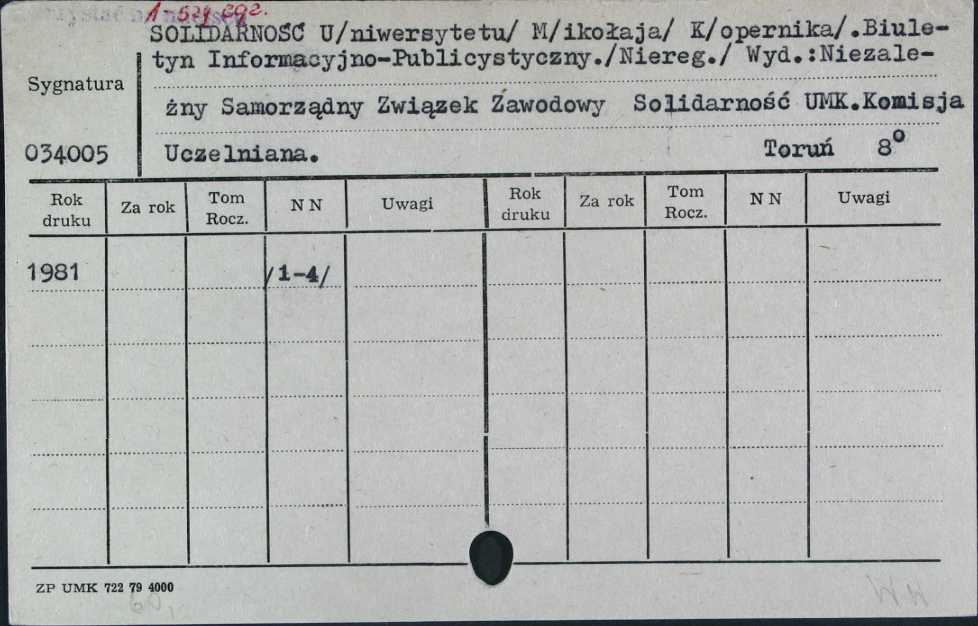 1-521 292.
SOLIDARNOŚĆ U/niwersytetu/ M/ikołaja/ K/opernika/.Biule-
tyn Informacyjno-Publicystyczny./Niereg./ Wyd.:Niezale-
Sygnatura
żny Samorządny Związek Zawodowy Solidarność UMK.Komisja
034005 Uczelniana. Toruń 8⁰
Rok druku Za rok Tom Rocz. N N Uwagi Rok druku Za rok Tom Rocz. N N Uwagi
1981 /1-4/
ZP UMK 722 79 4000